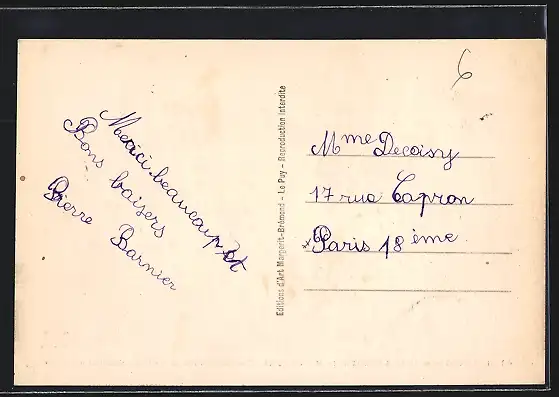 6
Merici beaucoup et
Bons baisers
Pierre Barnier
Editions d'Art Margerit-Brémond - Le Puy - Reproduction interdite
Mme Decoisy
17 rue Capron
Paris 18 ème